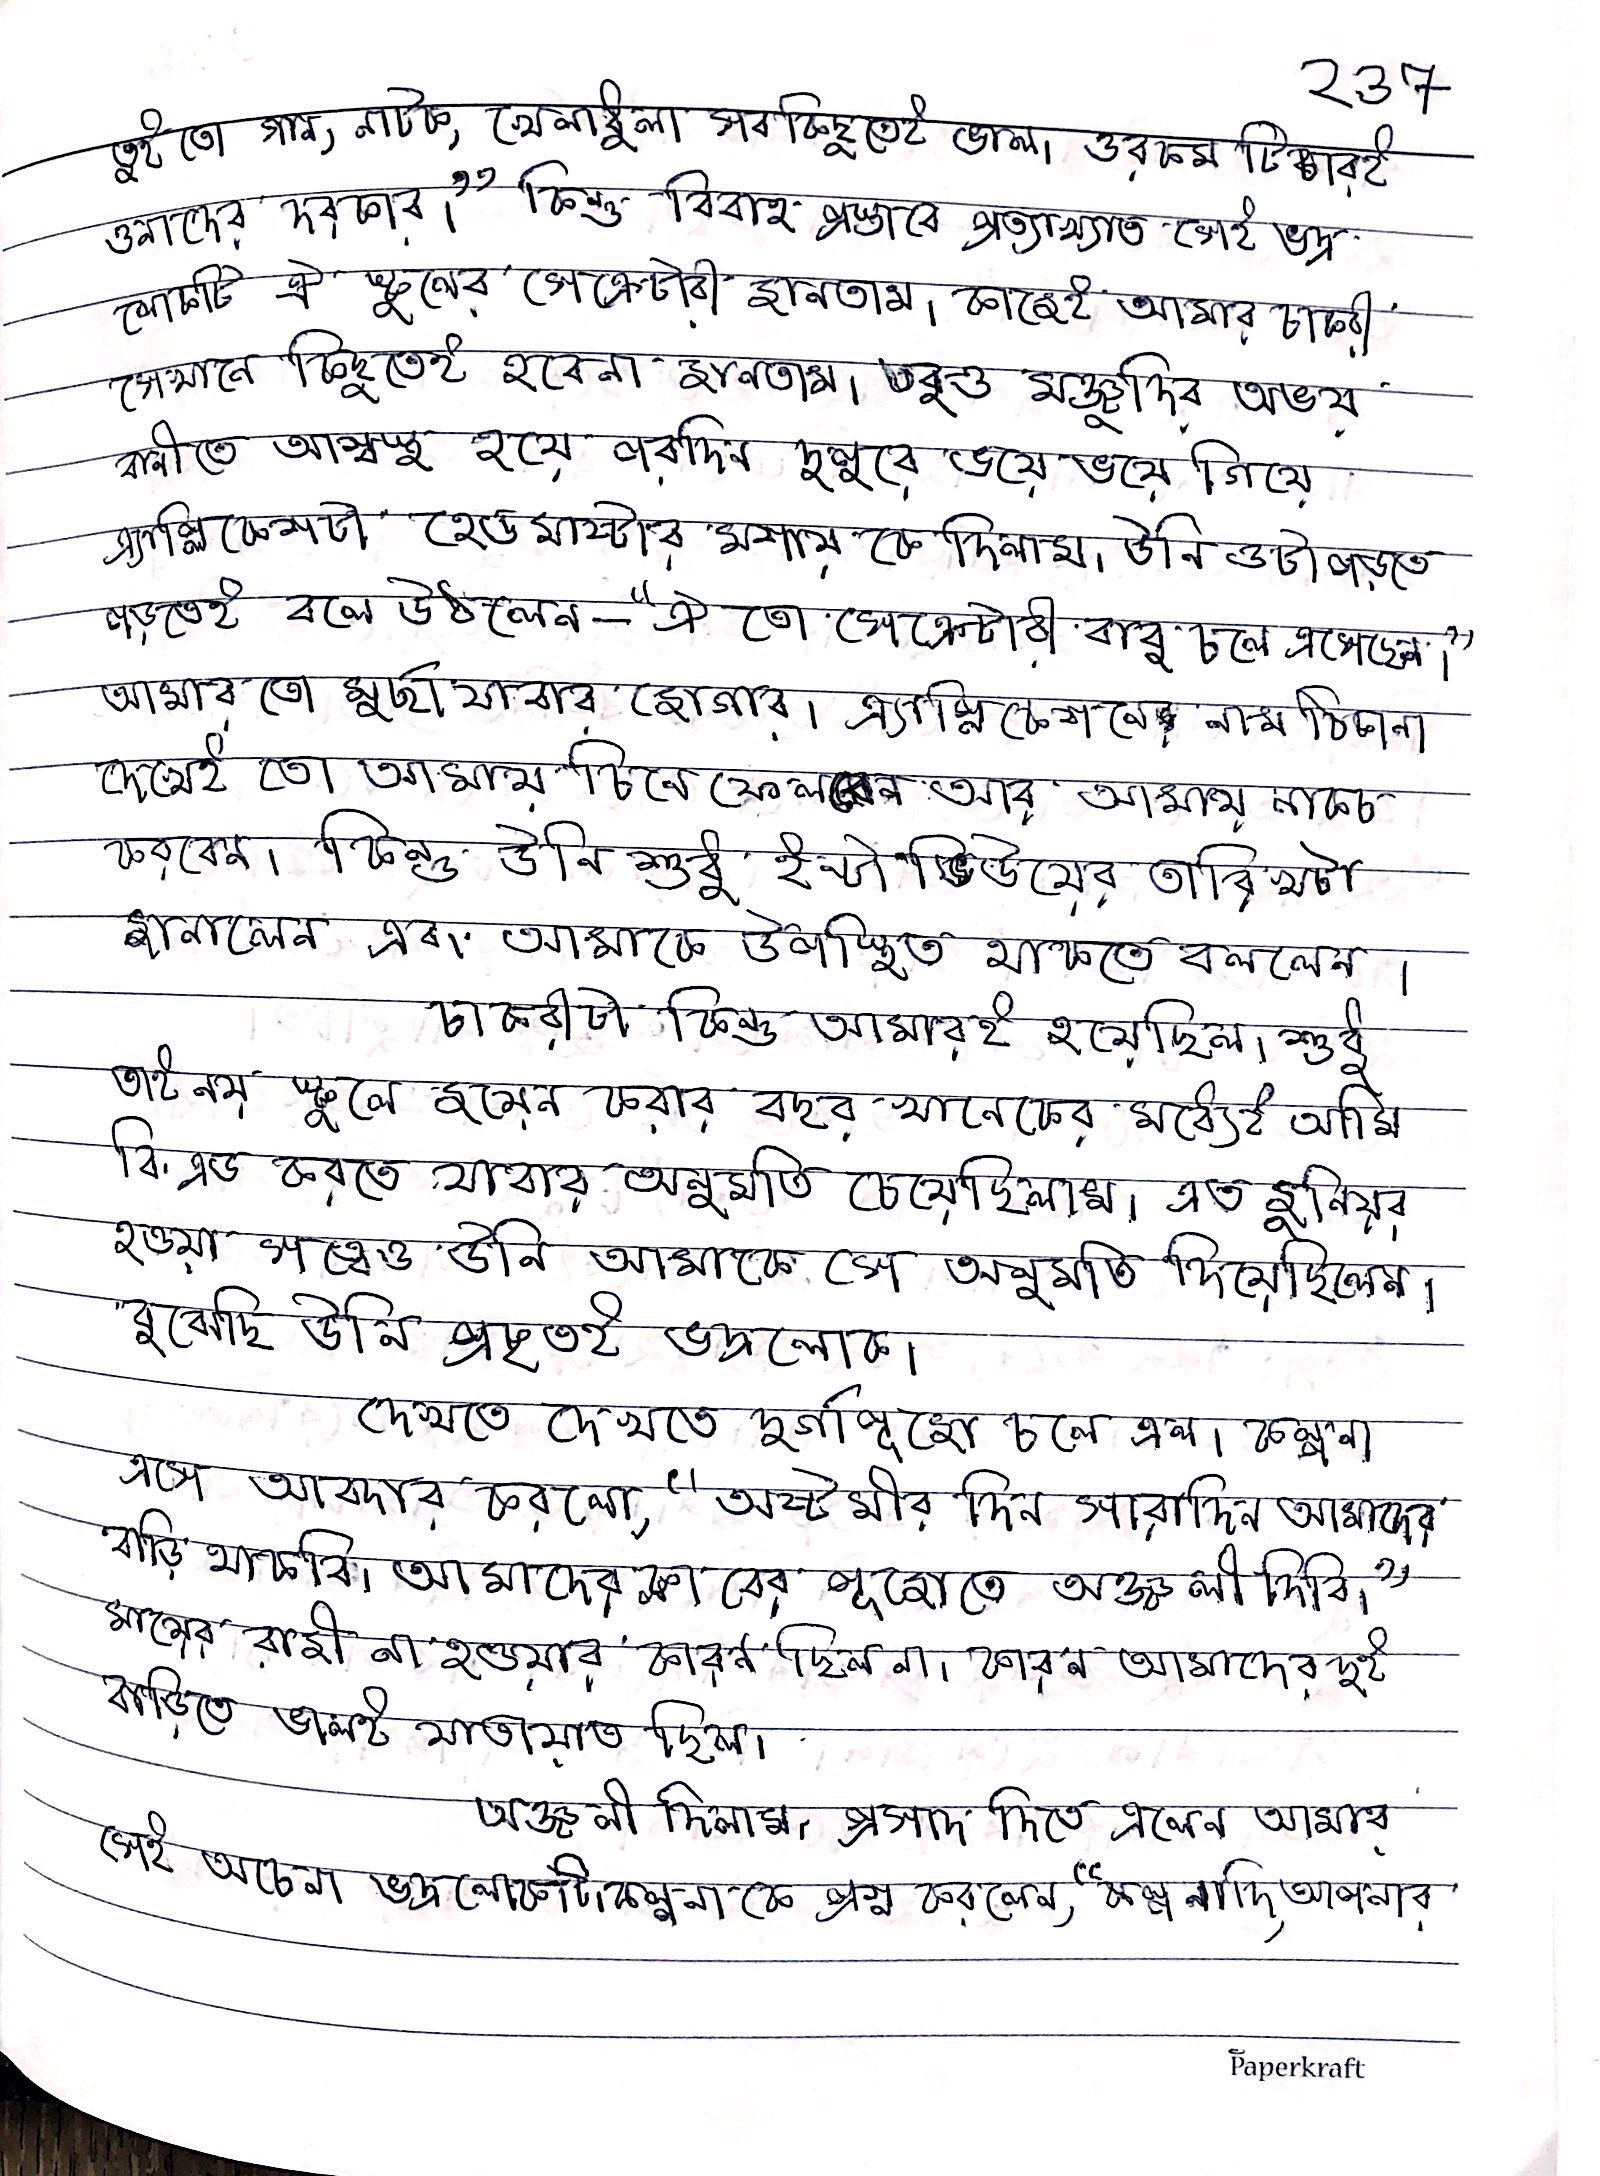 237
তুই তো গান, নাটক, খেলাধুলা সবকিছুতেই ভাল। ওরকম টিচারই
ওনাদের দরকার।” কিন্তু বিবাহ প্রস্তাবে প্রত্যাখ্যাত সেই ভদ্র
লোকটি ঐ স্কুলের সেক্রেটারী জানতাম। কাজেই আমার চাকরী
সেখানে কিছুতেই হবেনা জানতাম। তবুও মঞ্জুদির অভয়
বানীতে আশ্বস্ত হয়ে পরদিন দুপুরে ভয়ে ভয়ে গিয়ে
এ্যাপ্লিকেশটা হেডমাস্টার মশায় কে দিলাম। উনি ওটা পড়তে
পড়তেই বলে উঠলেন — “ঐ তো সেক্রেটারী বাবু চলে এসেছেন।”
আমার তো মুর্ছা যাবার জোগার। এ্যাপ্লিকেশনের নাম ঠিকানা
দেখেই তো আমায় চিনে ফেলবেন আর আমায় নাকচ
করবেন। কিন্তু উনি শুধু ইন্টাভিউয়ের তারিখটা
জানালেন এবং আমাকে উপস্থিত থাকতে বললেন।
চাকরীটা কিন্তু আমারই হয়েছিল। শুধু
তাই নয় স্কুলে জয়েন করার বছর খানেকের মধ্যেই আমি
বি.এড করতে যাবার অনুমতি চেয়েছিলাম। এত জুনিয়র
হওয়া সত্বেও উনি আমাকে সে অনুমতি দিয়েছিলেন।
বুঝেছি উনি প্রকৃতই ভদ্রলোক।
দেখতে দেখতে দুর্গাপূজো চলে এল। কল্পনা
এসে আবদার করলো, “অষ্টমীর দিন সারাদিন আমাদের
বাড়ি থাকবি। আমাদের ক্লাবের পূজোতে অঞ্জলী দিবি।”
মায়ের রাজী না হওয়ার কারন ছিলনা। কারন আমাদের দুই
বাড়িতে ভালই যাতায়াত ছিল।
অঞ্জলী দিলাম, প্রসাদ দিতে এলেন আমার
সেই অচেনা ভদ্রলোকটি। কল্পনা কে প্রশ্ন করলেন, “কল্পনাদি, আপনার
Paperkraft